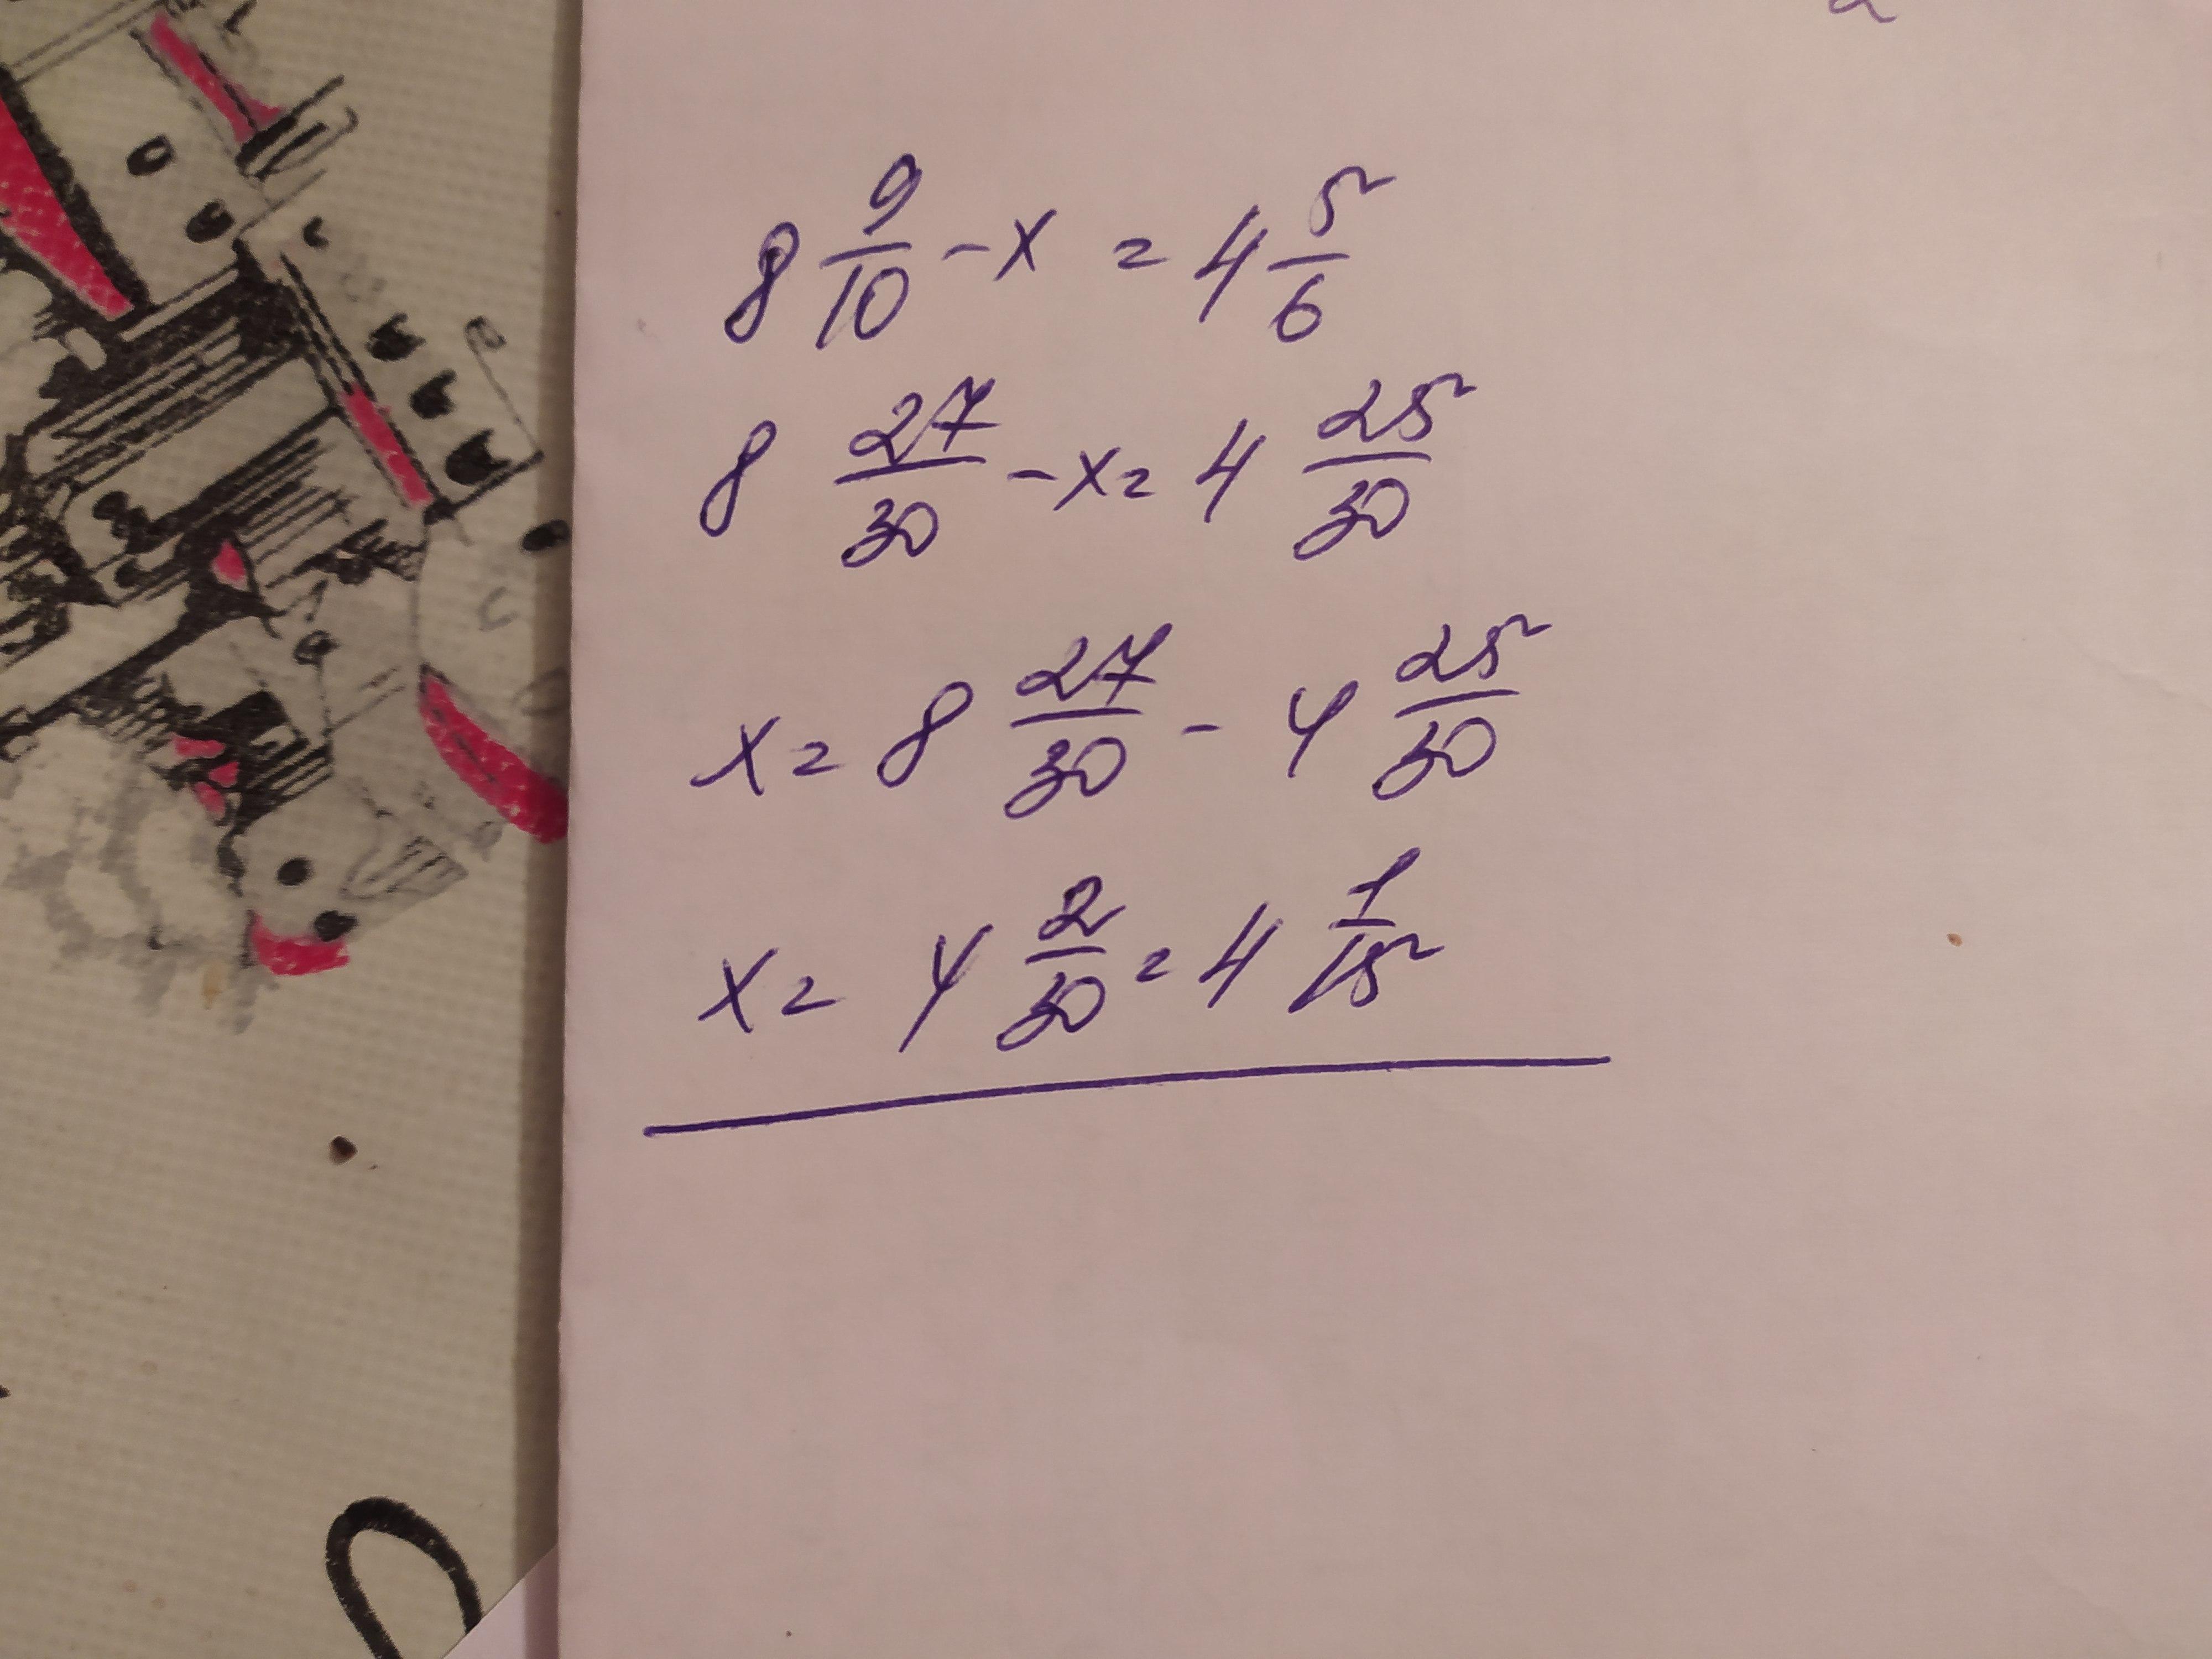 8 9/10 - x = 4 5/6
8 27/30 - x = 4 25/30
x = 8 27/30 - 4 25/30
x = 4 2/30 = 4 1/15